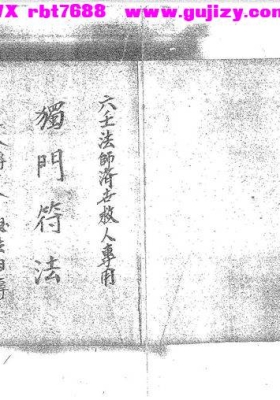 WX rbt7688 www.gujizy.com
六壬法師濟世救人專用
獨門符法